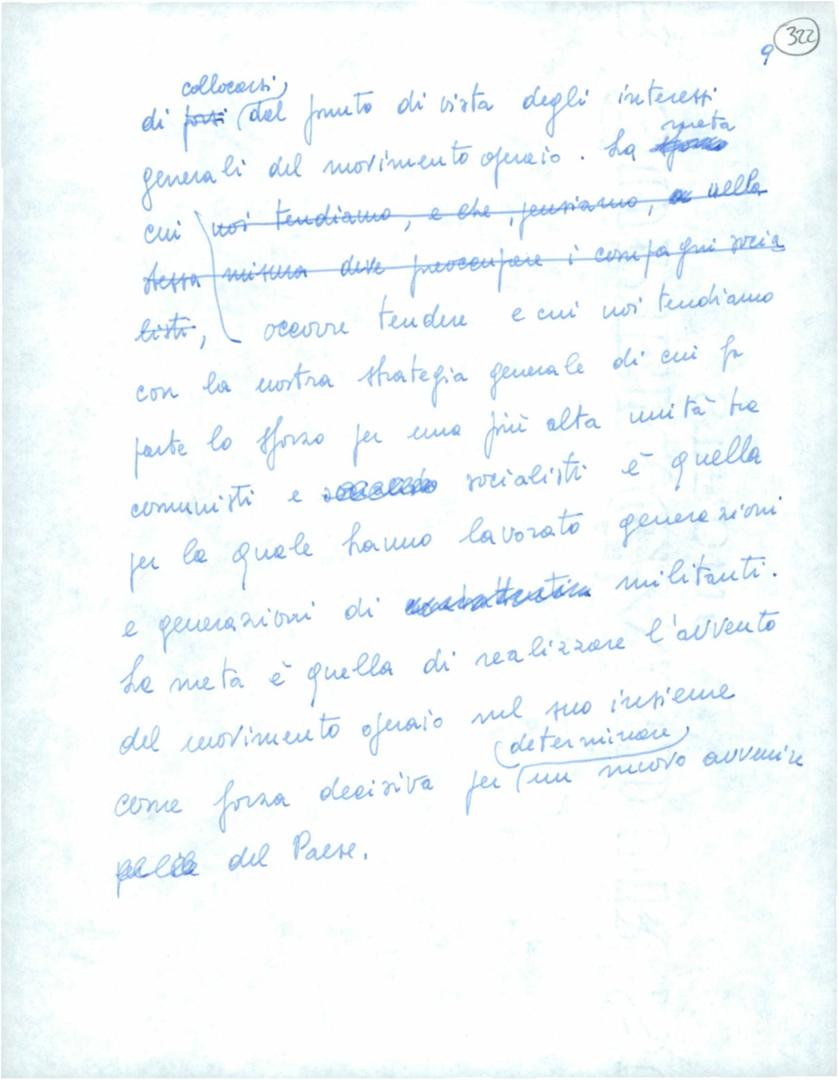 9 322
collocarsi
di porsi dal punto di vista degli interessi
meta
generali del movimento operaio. La
cui noi tendiamo, e che, pensiamo, nella
stessa misura deve preoccupare i compagni socia
listi, occorre tendere e cui noi tendiamo
con la nostra strategia generale di cui fa
parte lo sforzo per una più alta unità tra
comunisti e socialisti è quella
per la quale hanno lavorato generazioni
e generazioni di militanti.
La meta è quella di realizzare l'avvento
del movimento operaio nel suo insieme
determinare
come forza decisiva per un nuovo avvenire
del Paese.